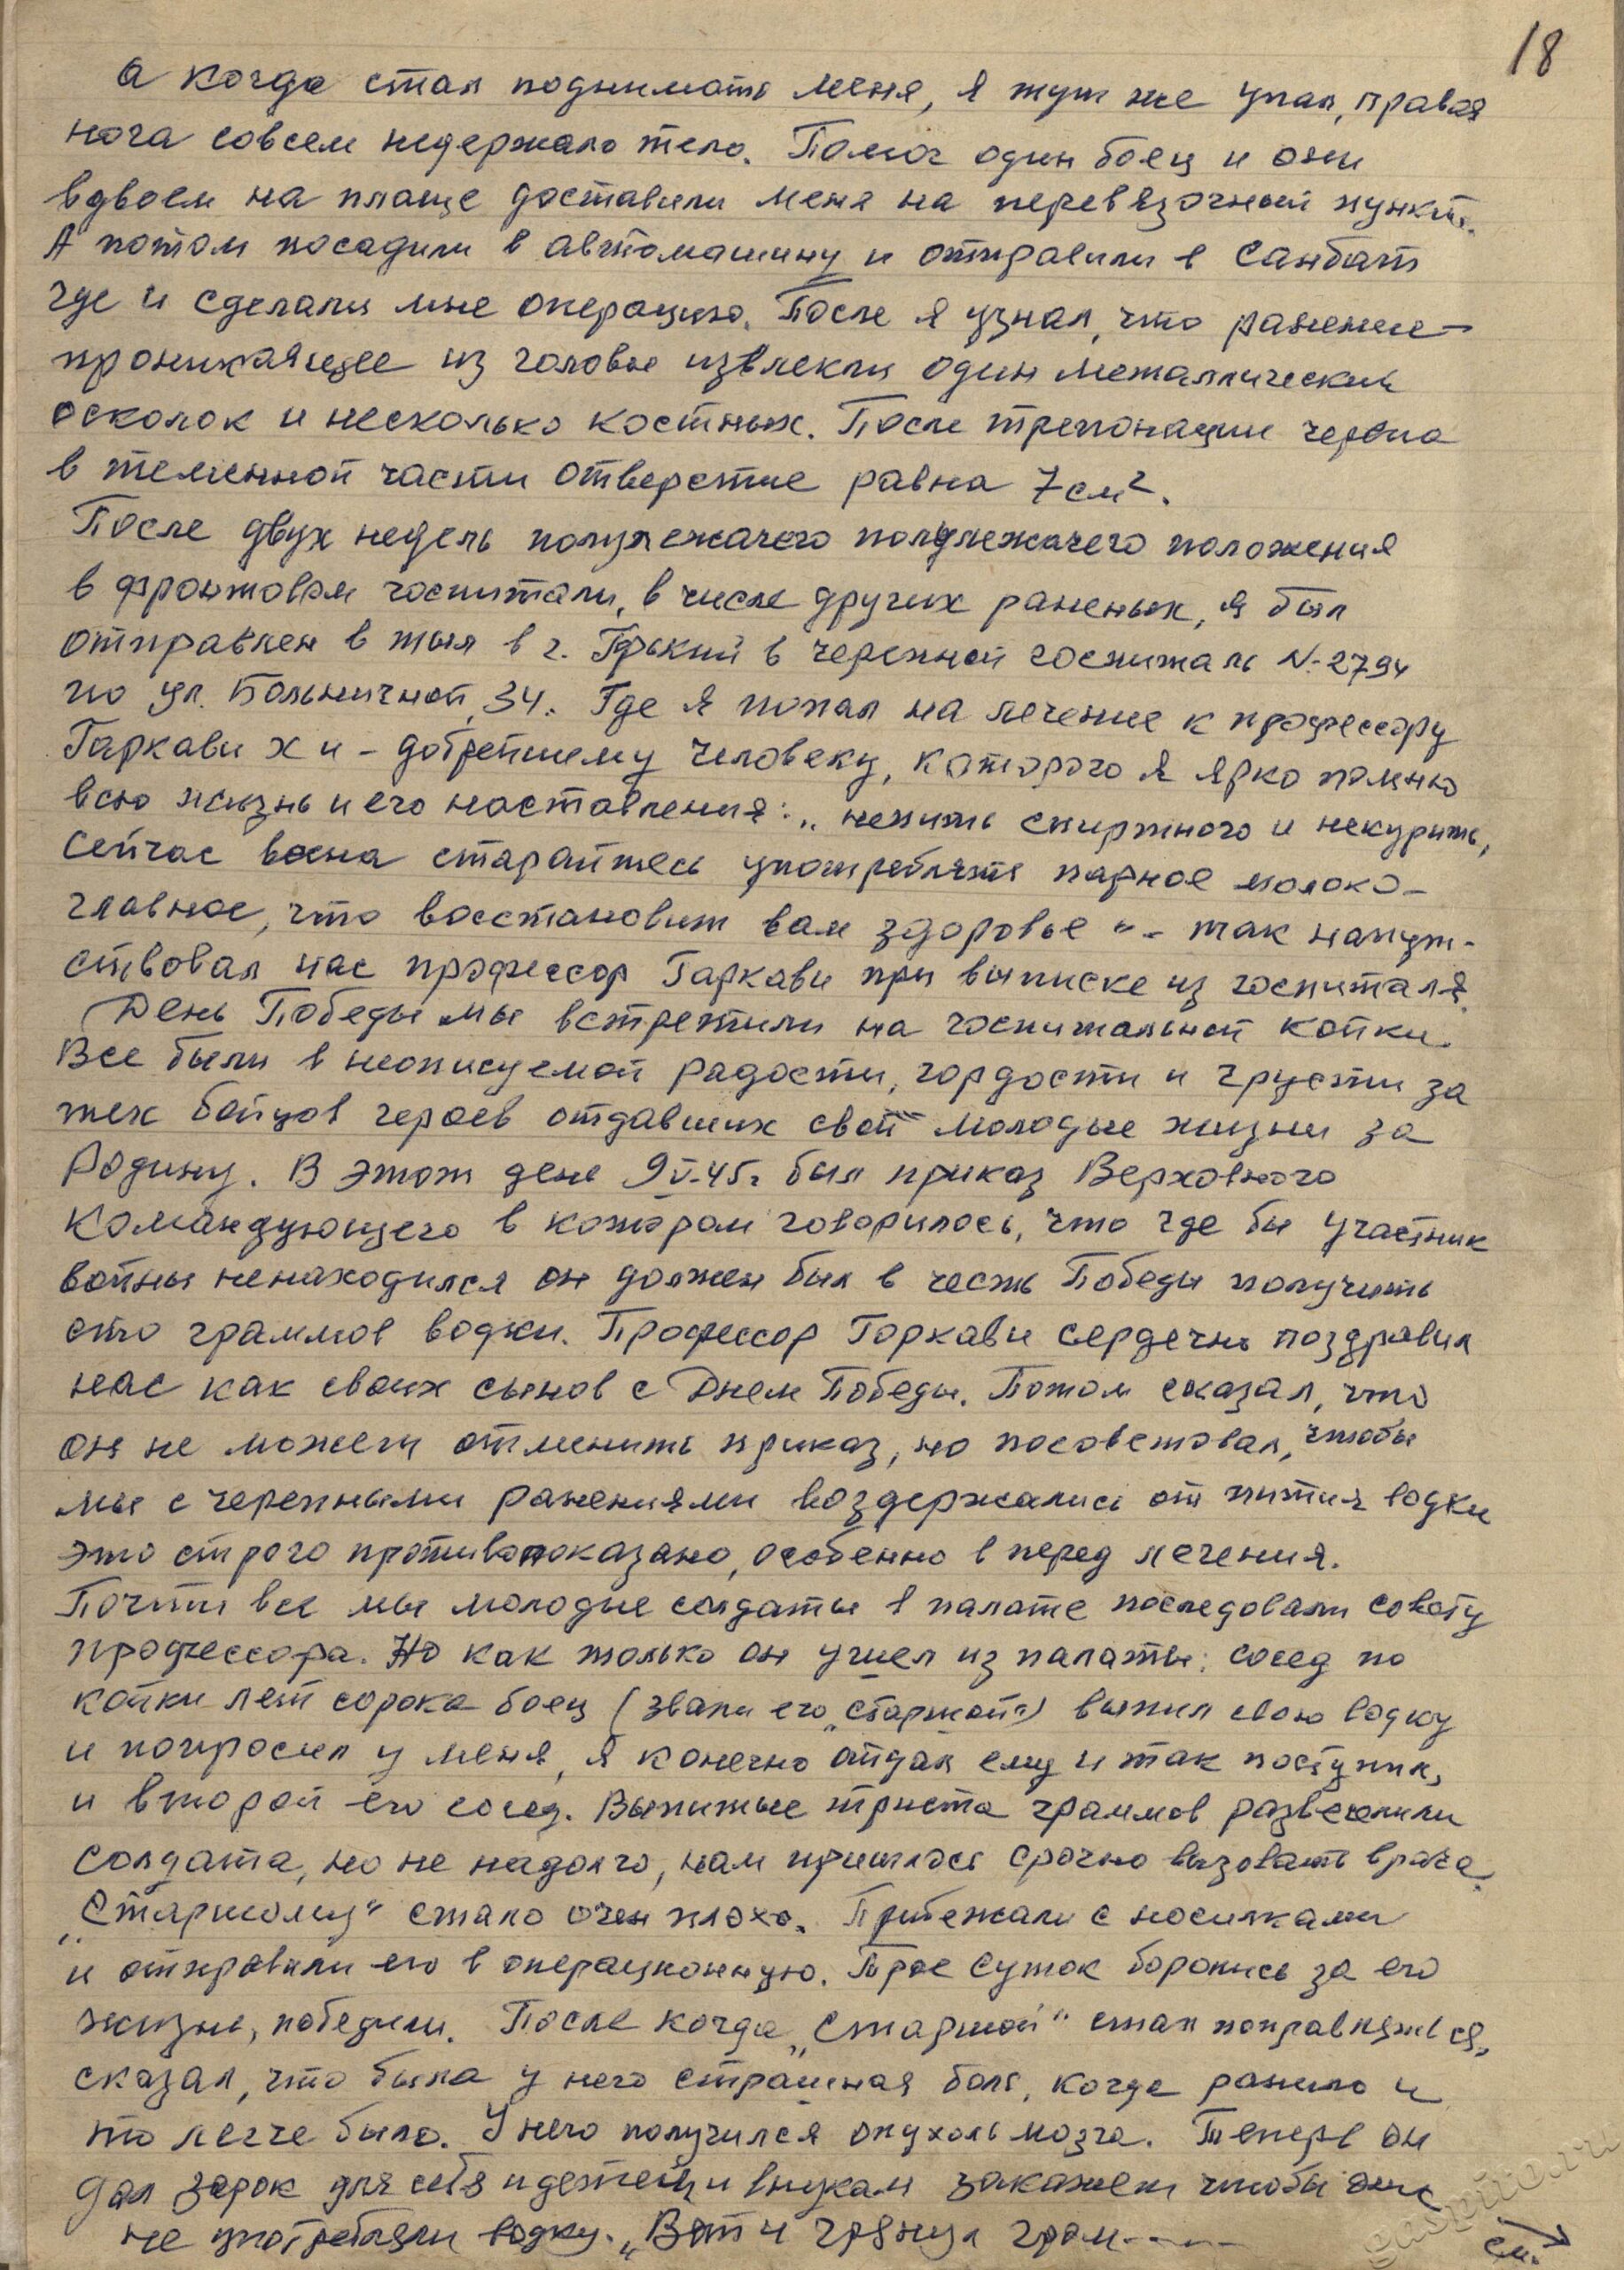 18
А когда стал поднимать меня, я тут же упал, правая
нога совсем недержало тело. Помог один боец и они
вдвоем на плаще доставили меня на перевязочный пункт.
А потом посадили в автомашину и отправили в Санбат
где и сделали мне операцию. После я узнал, что ранение –
проникающее из головы извлекли один металлический
осколок и несколько костных. После трепонации черепа
в теменной части отверстие равна 7 см².
После двух недель полулежачего полулежачего положения
в фронтовом госпитали, в числе других раненых, я был
отправлен в тыл в г. Горький в черепной госпиталь №2794
по ул. Больничной, 34. Где я попал на лечение к профессору
Гаркави Х и – добрейшему человеку, которого я ярко помню
всю жизнь и его наставления: „непить спиртного и некурить,
Сейчас война старайтесь употреблять парное молоко –
главное, что восстановит вам здоровье“ – так напут-
ствовал нас профессор Гаркави при выписке из госпиталя.
День Победы мы встретили на госпитальной койки.
Все были в неописуемой радости, гордости и грусти за
тех бойцов героев отдавших свой молодые жизни за
Родину. В этот день 9 V-45г был приказ Верховного
Командующего в котором говорилось, что где бы участник
войны ненаходился он должен был в честь Победы получить
сто граммов водки. Профессор Гаркави сердечно поздравил
нас как своих сынов с Днем Победы. Потом сказал, что
он не может отменить приказ, но посоветовал, чтобы
мы с черепными ранениями воздержались от пития водки
это строго противопоказано, особенно в перед лечения.
Почти все мы молодые солдаты в палате последовали совету
профессора. Но как только он ушел из палаты: сосед по
койки лет сорока боец (звали его „Старшой“) выпил свою водку
и попросил у меня, я конечно отдал ему и так поступил,
и второй его сосед. Выпитые триста граммов развеселили
солдата, но не надолго, нам пришлось срочно вызовать врача.
„Старшому“ стало очен плохо. Прибежали с носилками
и отправили его в операционную. Трое суток боролись за его
жизнь, победили. После когда „Старшой“ стал поправляться,
сказал, что была у него страшная боль, когда ранило и
то легче было. У него получился опухоль мозга. Теперь он
дал зарок для себя и детей и внукам закажет чтобы они
не употребляли водку. „Вот и грянул гром -----
см.
gaspito.ru